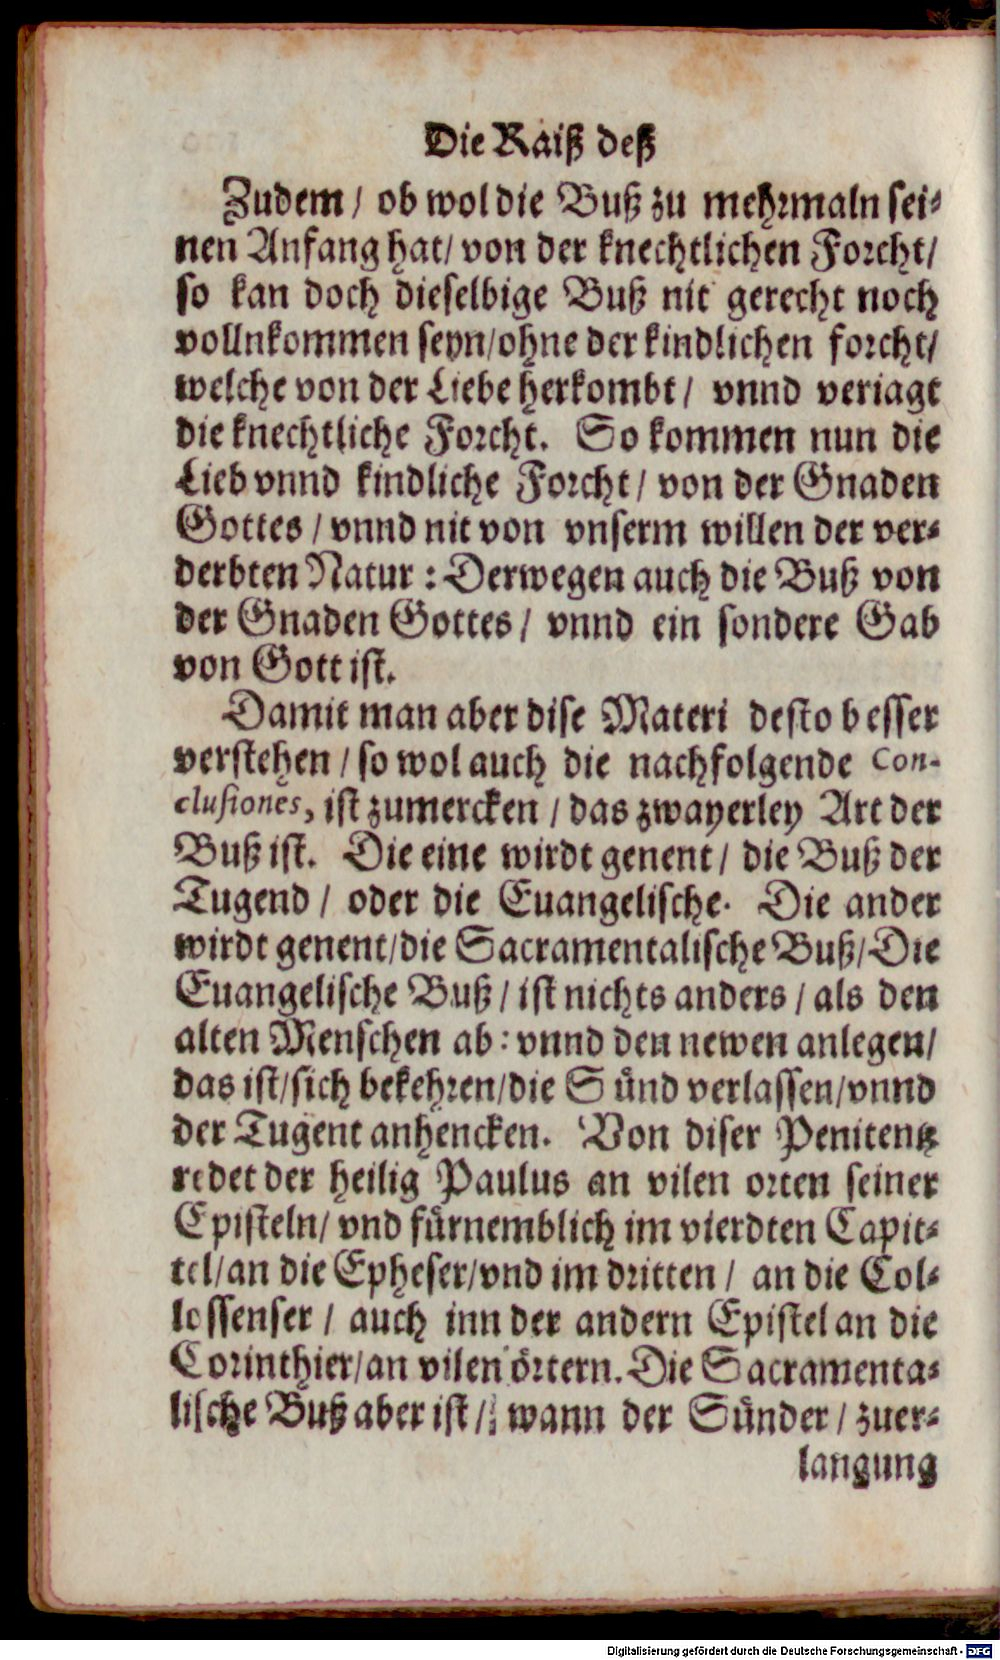 Die Raiß deß
Zudem / ob wol die Buß zu mehrmaln sei-
nen Anfang hat / von der knechtlichen Forcht /
so kan doch dieselbige Buß nit gerecht noch
vollnkommen seyn / ohne der kindlichen forcht /
welche von der Liebe herkombt / vnnd veriagt
die knechtliche Forcht. So kommen nun die
Lieb vnnd kindliche Forcht / von der Gnaden
Gottes / vnnd nit von vnserm willen der ver-
derbten Natur : Derwegen auch die Buß von
der Gnaden Gottes / vnnd ein sondere Gab
von Gott ist.
Damit man aber dise Materi desto besser
verstehen / so wol auch die nachfolgende Con-
clusiones, ist zumercken / das zwayerley Art der
Buß ist. Die eine wirdt genent / die Buß der
Tugend / oder die Euangelische. Die ander
wirdt genent / die Sacramentalische Buß / Die
Euangelische Buß / ist nichts anders / als den
alten Menschen ab : vnnd den newen anlegen /
das ist / sich bekehren / die Sünd verlassen / vnnd
der Tugent anhencken. Von diser Penitentz
redet der heilig Paulus an vilen orten seiner
Episteln / vnd fürnemblich im vierdten Capit-
tel / an die Epheser / vnd im dritten / an die Col-
lossenser / auch inn der andern Epistel an die
Corinthier / an vilen örtern. Die Sacramenta-
lische Buß aber ist / wann der Sünder / zuer-
langung
Digitalisierung gefördert durch die Deutsche Forschungsgemeinschaft - DFG